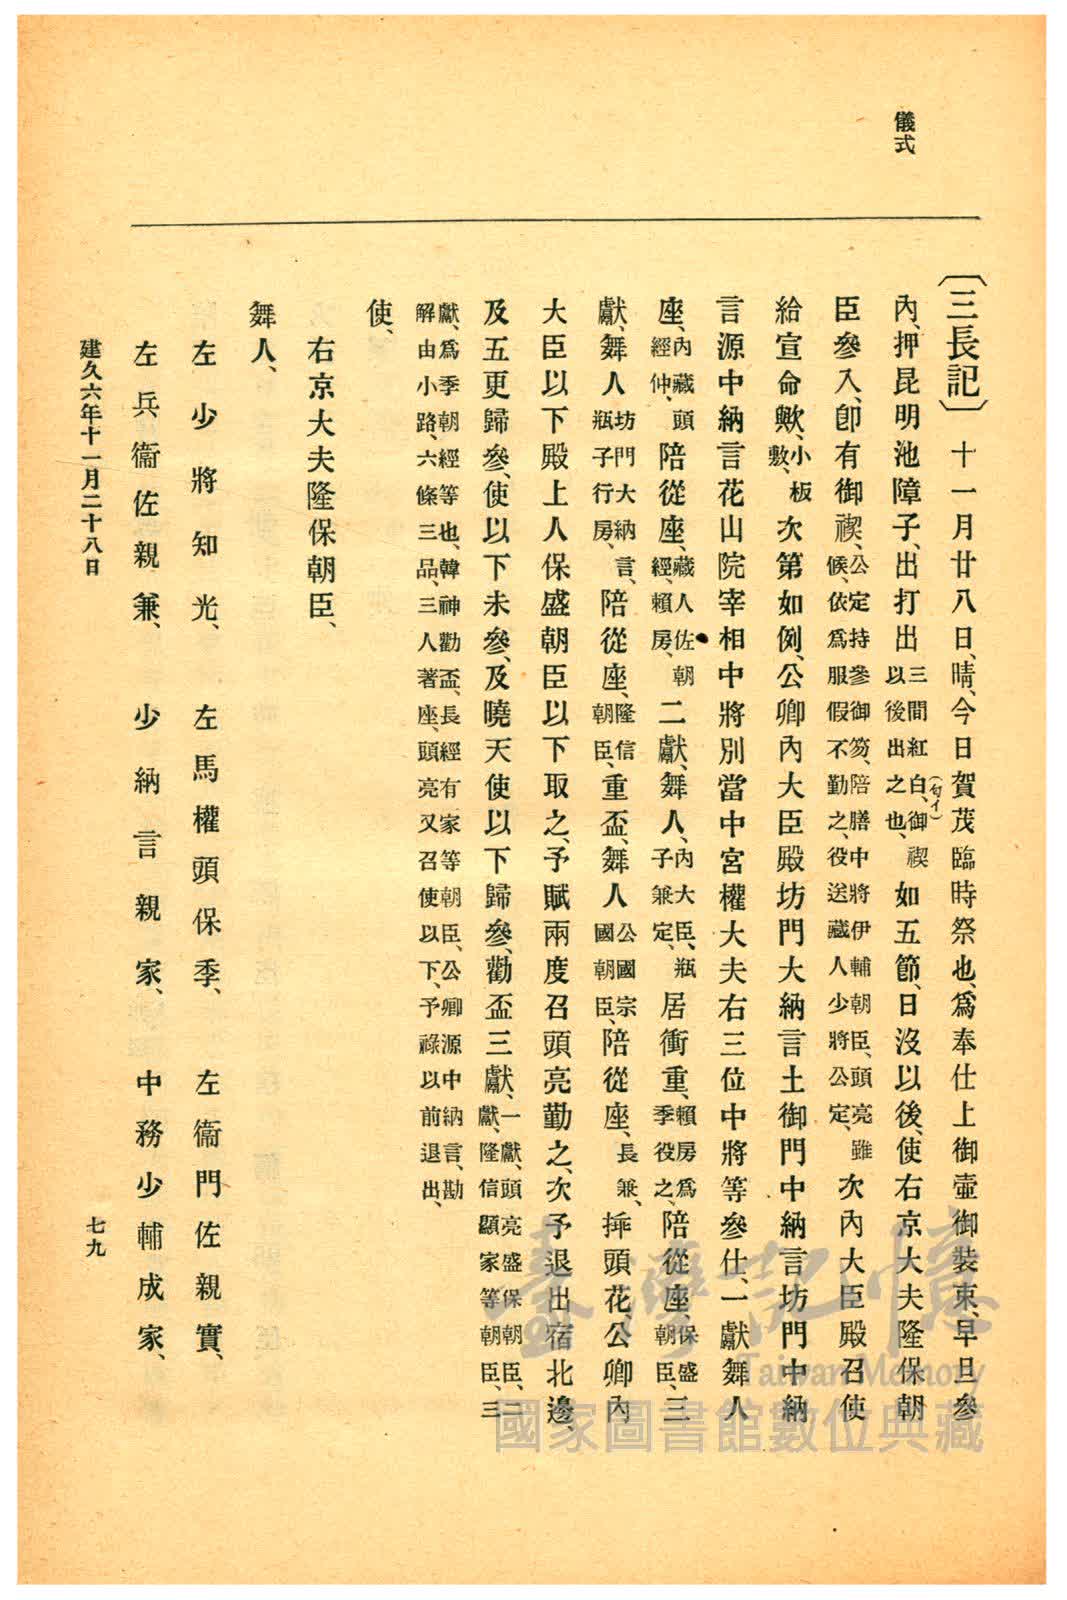 儀式
〔三長記〕十一月廿八日、晴、今日賀茂臨時祭也、爲奉仕上御壷御裝束、早旦參
內、押昆明池障子、出打出三間紅白、(匂イ)御禊以後出之也、如五節、日沒以後、使右京大夫隆保朝
臣參入、卽有御禊、公定持參御笏、陪膳中將伊輔朝臣、頭亮雖候、依爲服假不勤之、役送藏人少將公定、次內大臣殿召使
給宣命歟、小板敷、次第如例、公卿內大臣殿坊門大納言土御門中納言坊門中納
言源中納言花山院宰相中將別當中宮權大夫右三位中將等參仕、一獻舞人
座、內藏頭經仲、陪從座、藏人佐朝經、賴房、二獻、舞人、內大臣、瓶子兼定、居衝重、賴房爲季役之、陪從座、保盛朝臣、三
獻、舞人坊門大納言、瓶子行房、陪從座、隆信朝臣、重盃、舞人公國宗國朝臣、陪從座、長兼、揷頭花、公卿內
大臣以下殿上人保盛朝臣以下取之、予賦兩度召頭亮勤之、次予退出宿北邊、
及五更歸參、使以下未參、及曉天使以下歸參、勸盃三獻、一獻、頭亮盛保朝臣、二獻、隆信顯家等朝臣、三
獻、爲季朝經等也、韓神勸盃、長經有家等朝臣、公卿源中納言、勘解由小路、六條三品、三人著座、頭亮又召使以下、予祿以前退出、
使、
右京大夫隆保朝臣、
舞人、
左少將知光、　左馬權頭保季、　左衞門佐親實、
左兵衞佐親兼、　少納言親家、　中務少輔成家、
建久六年十一月二十八日
七九
臺灣記憶
Taiwan Memory
國家圖書館數位典藏